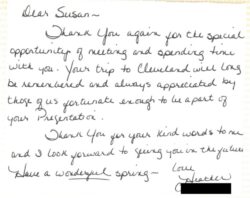 Dear Susan~
Thank You again for the special
opportunity of meeting and spending time
with you. Your trip to Cleveland will long
be remembered and always appreciated by
those of us fortunate enough to be a part of
your Presentation.
Thank You for your kind words to me
and I look forward to seeing you in the future
Have a wonderful spring~ Love
Heather